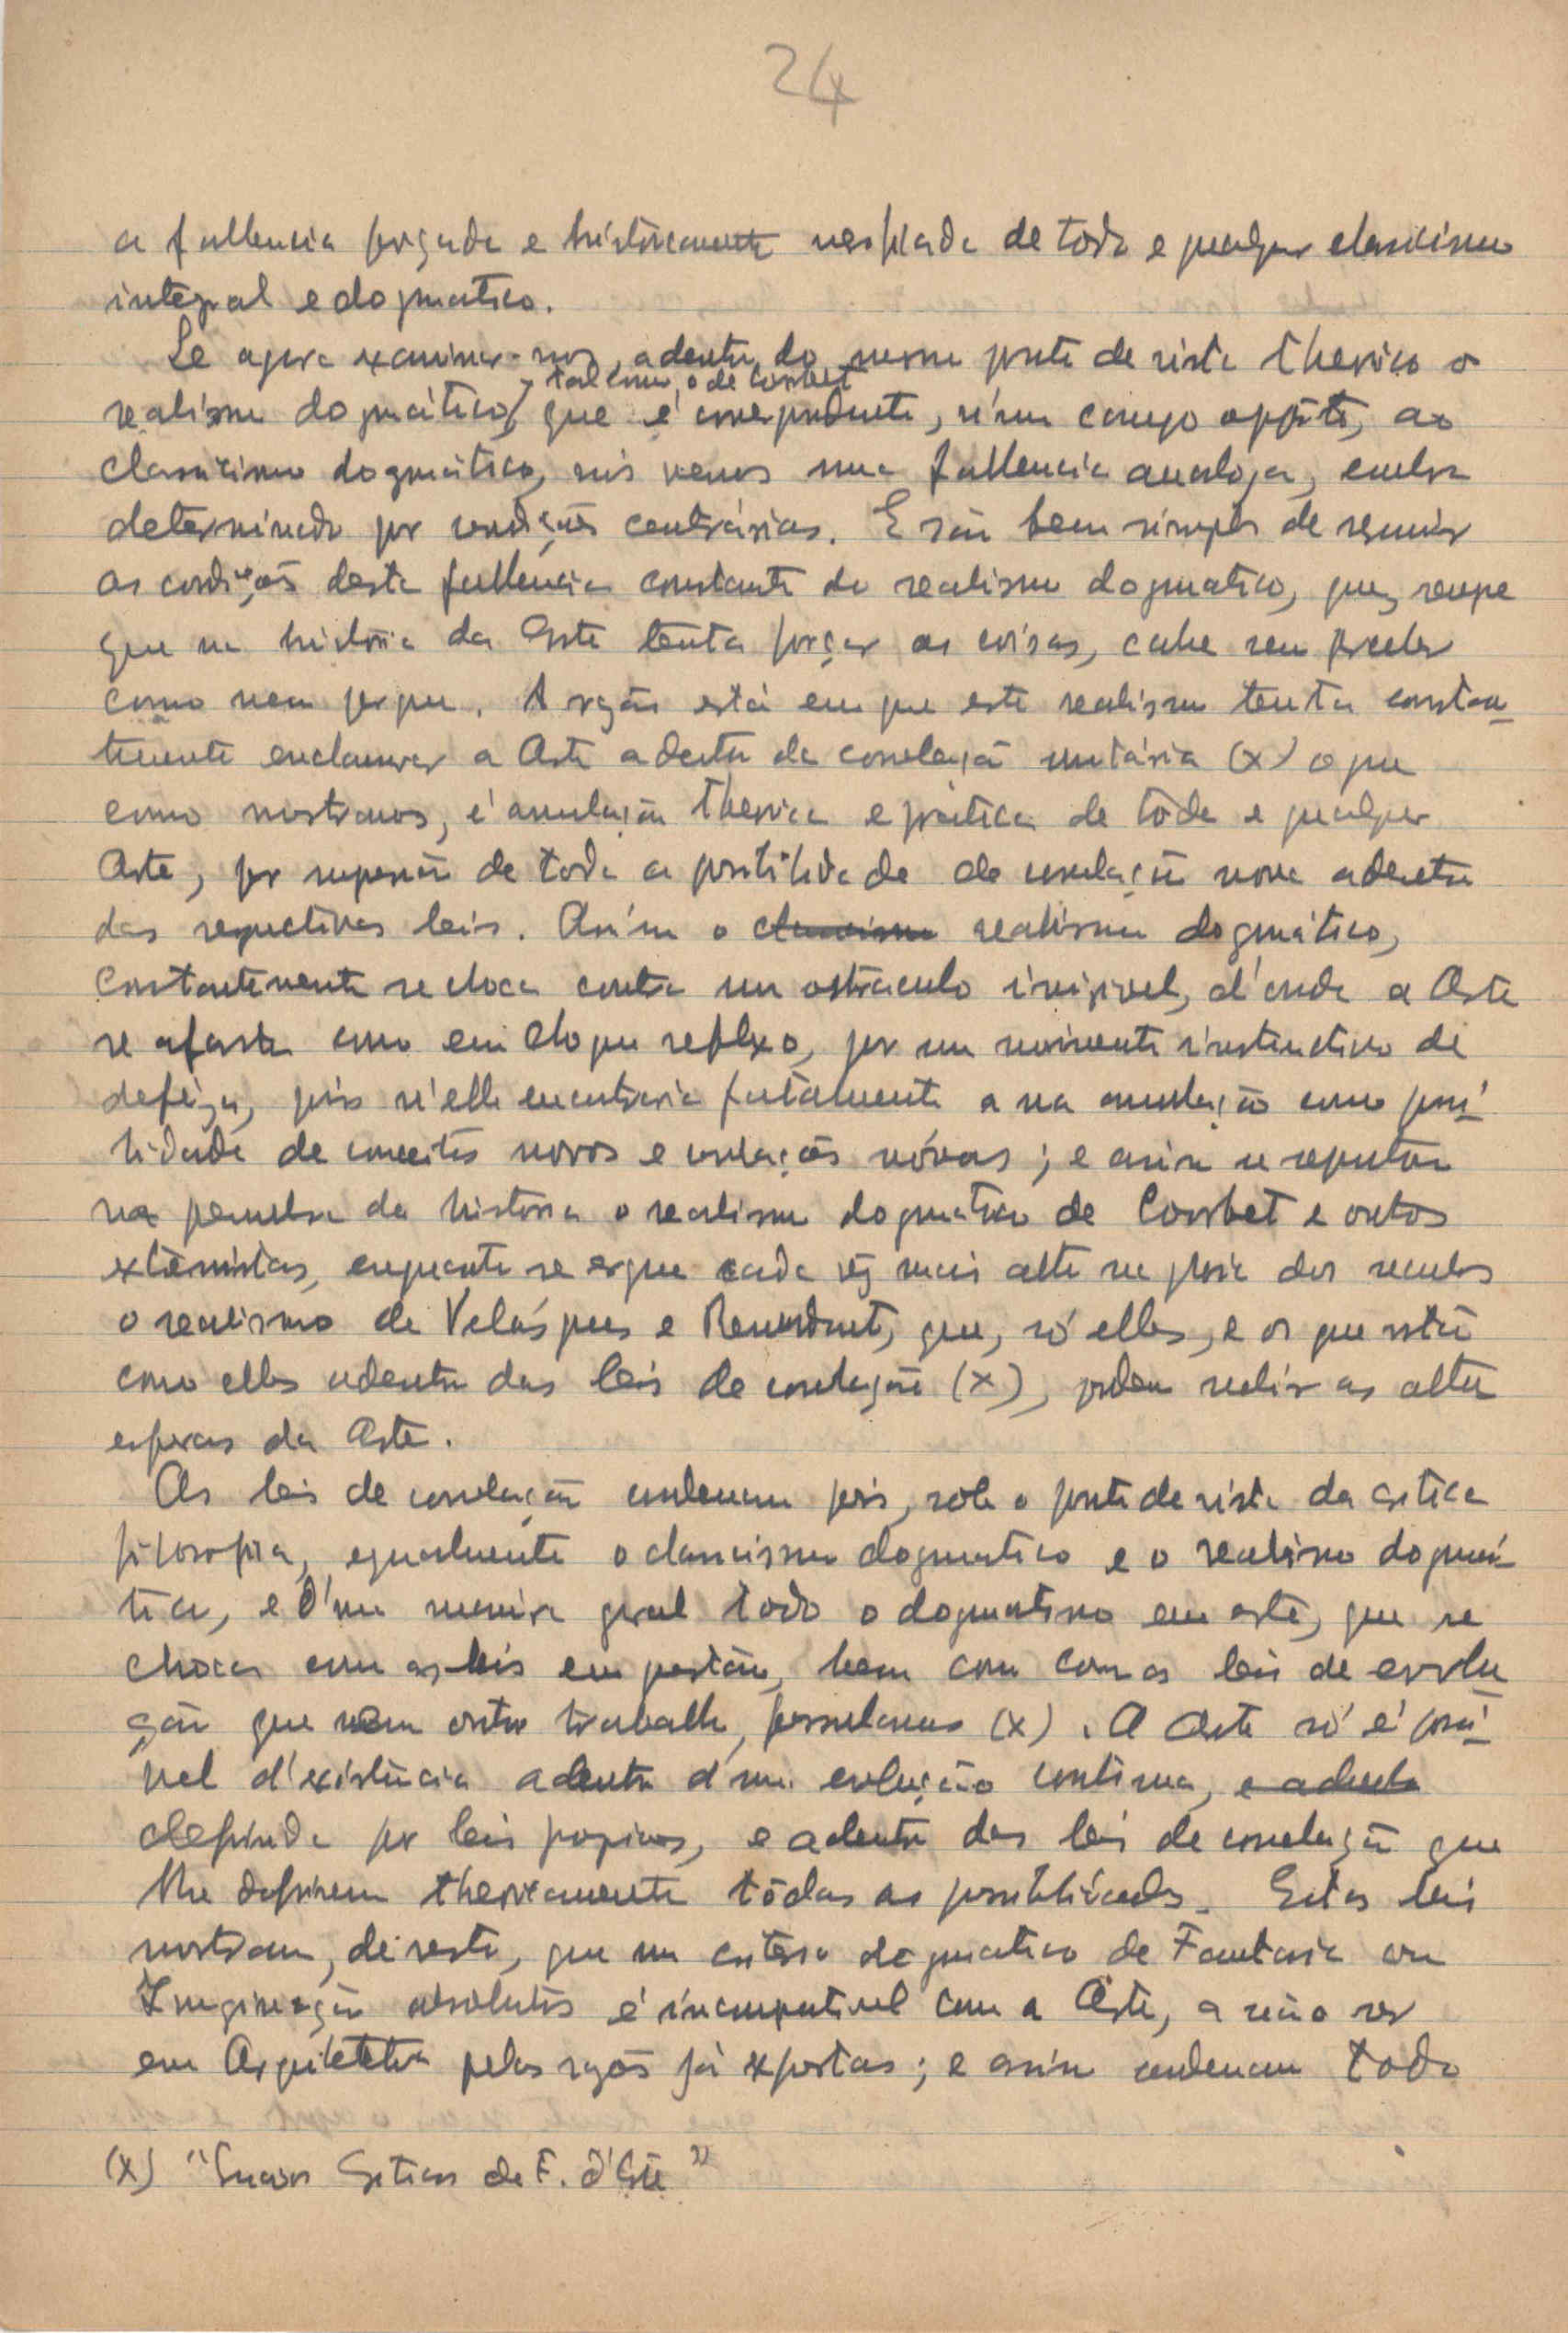 24
a fallencia forçada e històricamente verificada de toda e qualquer classicismo
integral e dogmatico.
Se agora examinar-mos, adentro do mesmo ponto de vista theorico o
realismo dogmático, tal como o de Courbet que é correspondente, n'um campo opposto, ao
classicismo dogmático, nós vemos uma fallencia analoga, embora
determinada por condições contrárias. E são bem simples de resumir
as condições desta fallencia constante do realismo dogmatico, que, sempre
que na história da Arte tenta forçar as coisas, cahe sem perceber
como nem porque. A razão está em que este realismo tenta constan-
temente enclausurar a Arte adentro da correlação unitária (x) o que
como mostramos, é anulação theorica e prática de tôda e qualquer
Arte, por supressão de toda a possibilidade de correlação nova adentro
das respectivas leis. Assim o classicismo realismo dogmático,
constantemente se choca contra um obstaculo invisivel, d'onde a Arte
se afasta como em choque reflexo, por um movimento instinctivo de
defeza, pois n'elle encontraria fatalmente a sua anulação como possi-
bilidade de conceitos novos e correlações nóvas; e assim se sepultou
na penumbra da historia o realismo dogmatico de Courbet e outros
extremistas, enquanto se ergue cada vez mais alto na gloria dos seculos
o realismo de Velásques e Rembrandt, que, só elles, e os que estão
como elles adentro das leis de correlação (x), podem subir as altas
esferas da Arte.
As leis de correlação condenam pois, sob o ponto de vista da critica
filosofica, egualmente o classicismo dogmatico e o realismo dogmá-
tico, e d'uma maneira geral todo o dogmatismo em arte, que se
choca com as leis em questão, bem como com as leis de evolu-
ção que n'um outro trabalho, formulamos (x). A Arte só é possi-
vel d'existência adentro d'uma evolução continua, e adentro
definida por leis proprias, e adentro das leis de correlação que
lhe definem theoricamente tôdas as possibilidades. Estas leis
mostram, de resto, que um criterio dogmatico de Fantasia ou
Imaginação absolutas é incompativel com a Arte, a não ser
em Arquitetura pelas razões já expostas; e assim condenam todo
(x) "Ensaios Criticos de F. d'Arte"